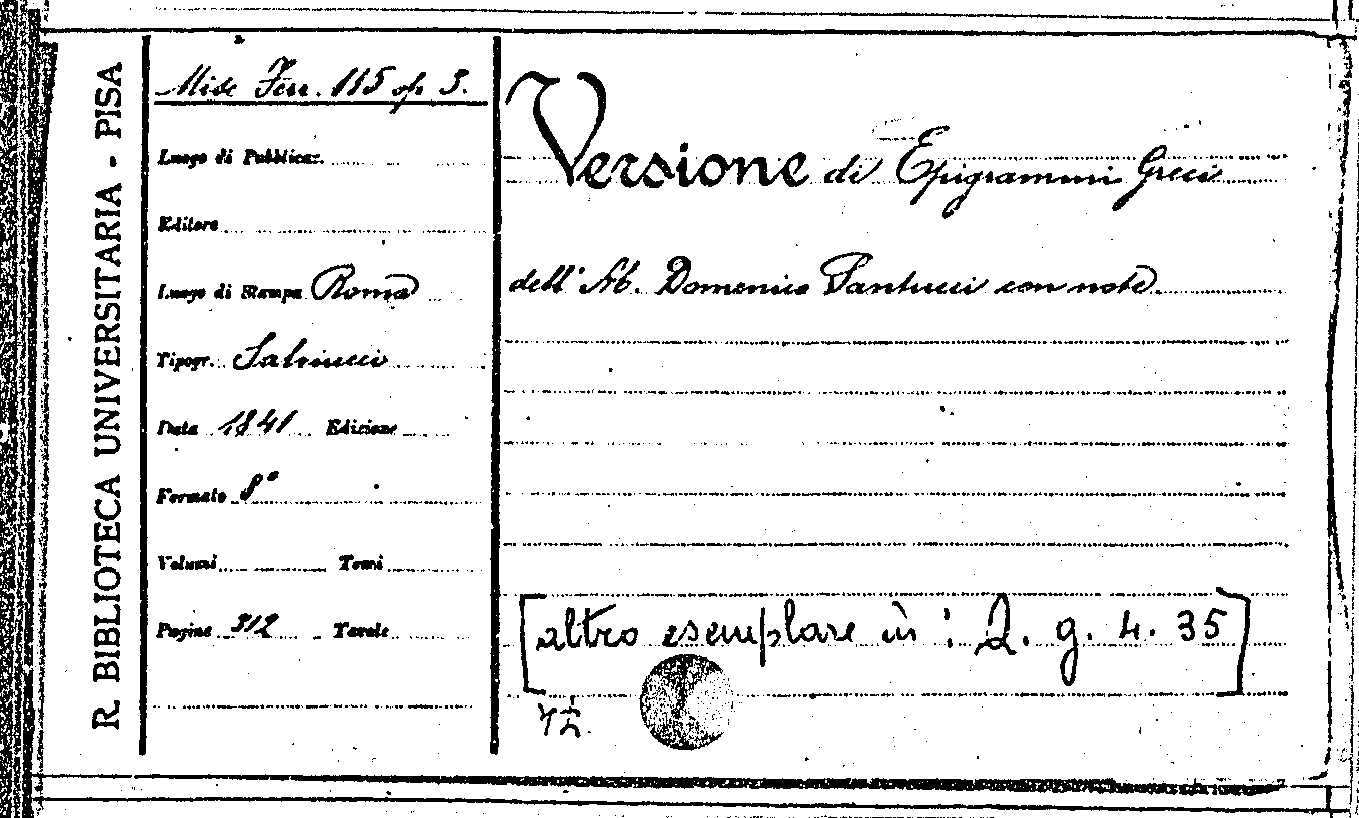 R. BIBLIOTECA UNIVERSITARIA - PISA
Misc Ferr. 115 op 3.
Luogo di Pubblicaz.
Editore
Luogo di Stampa Roma
Tipogr. Salviucci
Data 1841 Edizione
Formato 8°
Volumi Tomi
Pagine 312 Tavole
Versione di Epigrammi Greci
dell' Ab. Domenico Pantucci con note
[altro esemplare in: Q. g. 4. 35]